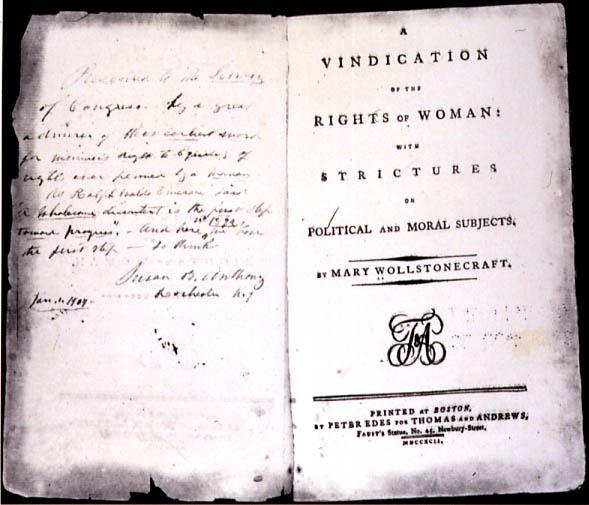 Presented to the Library
of Congress by a great
admirer of this earliest word
for woman's right to Equality of
rights ever penned by a woman
As Ralph Waldo Emerson said
"A wholesome discontent is the first step
toward progress." - And here in 1792 we have
the first step - so think
Susan B. Anthony
Rochester N.Y
Jan. 1. 1904 -
A
VINDICATION
OF THE
RIGHTS OF WOMAN:
WITH
STRICTURES
ON
POLITICAL AND MORAL SUBJECTS.
BY MARY WOLLSTONECRAFT.
T&A
PRINTED AT BOSTON,
BY PETER EDES FOR THOMAS AND ANDREWS,
FAUST'S Statue, No. 45, Newbury-Street,
MDCCXCII.